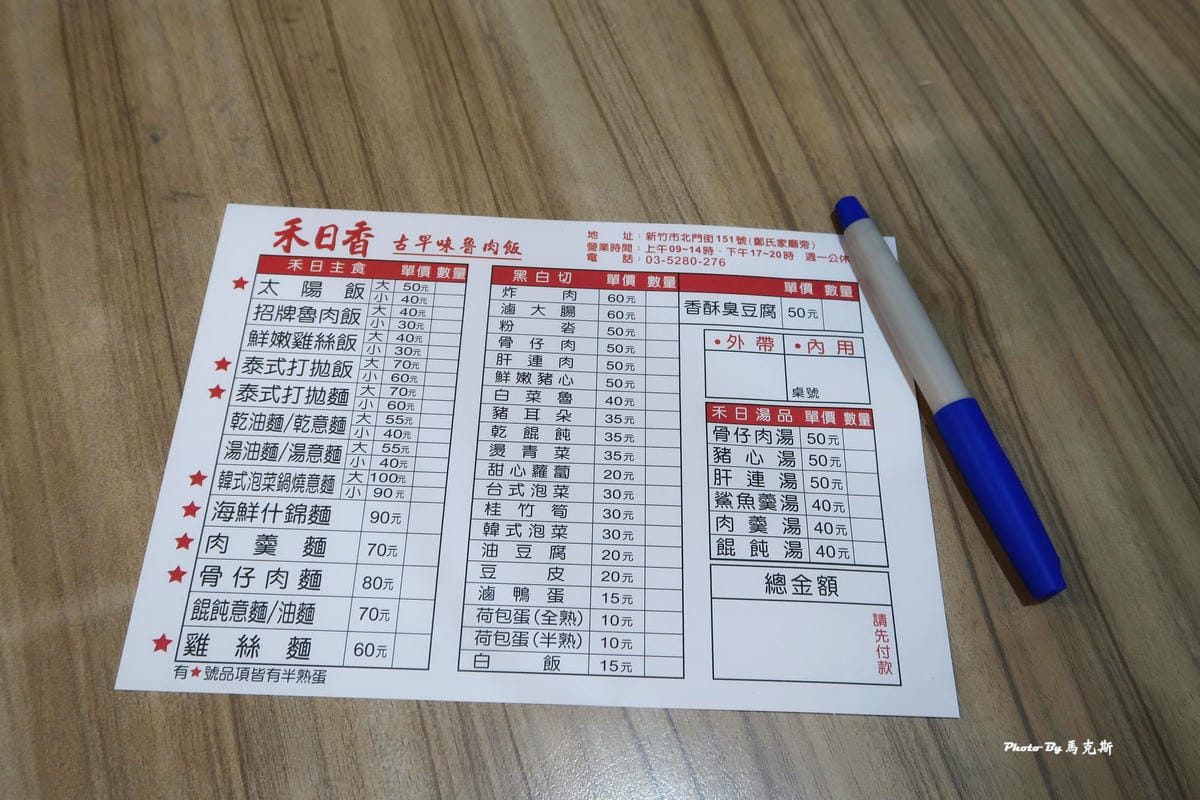 禾日香 古早味魯肉飯
地 址：新竹市北門街151號(鄭氏家廟旁)
營業時間：上午09~14時、下午17~20時 週一公休
電 話：03-5280-276
禾日主食 單價 數量
★ 太陽飯 大 50元
小 40元
招牌魯肉飯 大 40元
小 30元
鮮嫩雞絲飯 大 40元
小 30元
★ 泰式打拋飯 大 70元
小 60元
★ 泰式打拋麵 大 70元
小 60元
乾油麵/乾意麵 大 55元
小 40元
湯油麵/湯意麵 大 55元
小 40元
★ 韓式泡菜鍋燒意麵 大 100元
小 90元
★ 海鮮什錦麵 90元
★ 肉羹麵 70元
★ 骨仔肉麵 80元
餛飩意麵/油麵 70元
★ 雞絲麵 60元
有★號品項皆有半熟蛋
黑白切 單價 數量
炸肉 60元
滷大腸 60元
粉粩 50元
骨仔肉 50元
肝連肉 50元
鮮嫩豬心 50元
白菜魯 40元
豬耳朵 35元
乾餛飩 35元
燙青菜 35元
甜心蘿蔔 20元
台式泡菜 30元
桂竹筍 30元
韓式泡菜 30元
油豆腐 20元
豆皮 20元
滷鴨蛋 15元
荷包蛋(全熟) 10元
荷包蛋(半熟) 10元
白飯 15元
單價 數量
香酥臭豆腐 50元
•外帶 •內用
桌號
禾日湯品 單價 數量
骨仔肉湯 50元
豬心湯 50元
肝連湯 50元
鯊魚羹湯 40元
肉羹湯 40元
餛飩湯 40元
總金額
請先付款
Photo By 馬克斯